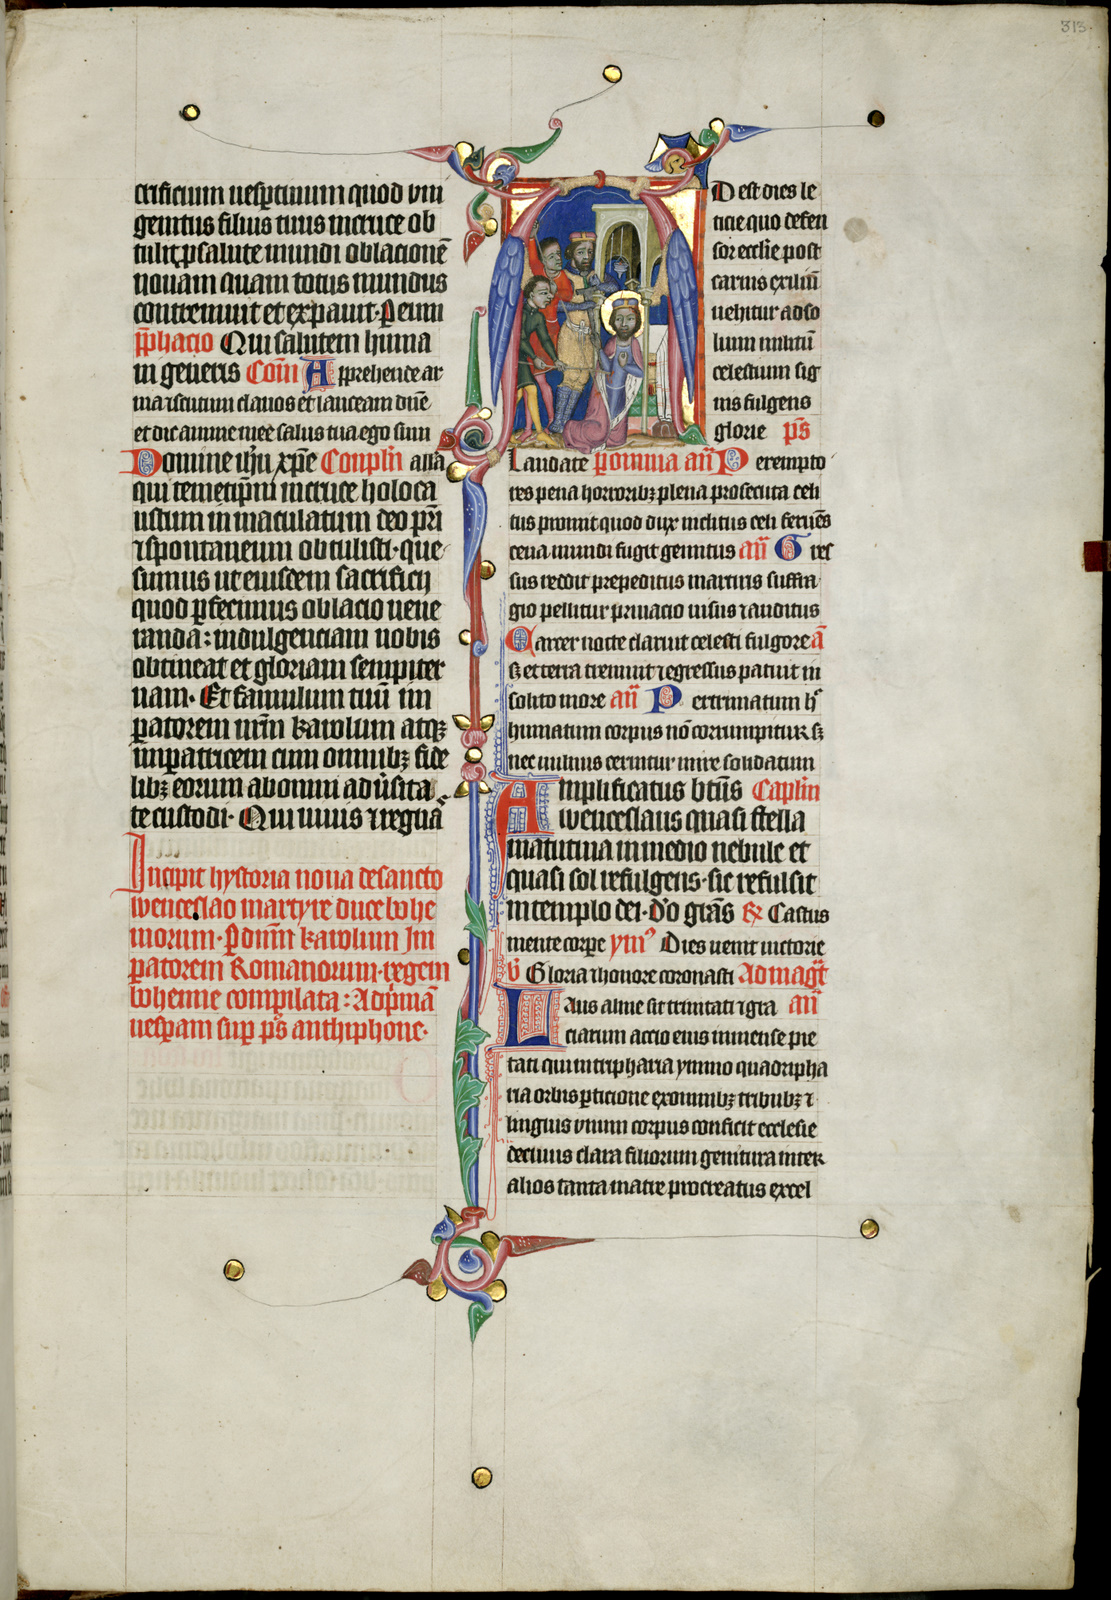 313.
crificium uesp̱tinum quod uni
genitus filius tuus in cruce ob
tulit p̱ salute mundi oblacionē
nouam quam totus mundus
contremuit et expauit· Per eum
p̄phacio Qui salutem huma
ni generis Com̄ Apprehende ar
ma ⁊ scutum clauos et lanceam dn̄e
et dic anime mee salus tua ego sum
Domine ih̄u xp̄e Conpl̄n alia
qui temetip̄m in cruce holoca
ustum in maculatum deo pr̄i
⁊ spontaneum obtulisti· que
sumus ut eiusdem sacrificij
quod ꝑfecimus oblacio uene
randa: indulgenciam nobis
obtineat et gloriam sempiter
nam· Et famulum tuū im
peratorem nr̄m karolum atqꝫ
imꝑatricem cum omnibꝫ fide
libꝫ eorum ab omni adu̓sita
te custodi· Qui uiuis ⁊ regnā
Incipit hystoria noua de sancto
wenceslao martyre duce bohe
morum· P̱ dnm̄ karolum Im
peratorem Romanorum· regem
bohemie compilata: Ad pmā
uesp̱am sup̱ p̄s anthiphone·
Adest dies le
ticie quo defen
sor eccl̄ie post
carnis exiliū
uehitur ad so
lium militū
celestium sig
nis fulgens
glorie p̄s
Laudate p̱ omnia an̄ Perempto
res pena horroribꝫ plena prosecuta celi
tus promit quod dux inclitus celi feruēs
cena mundi fugit gemitus an̄ Gres
sus reddit prepeditus martiris suffra
gio pellitur priuacio uisus ⁊ auditus
Carcer nocte claruit celesti fulgore ā
sꝫ et terra tremuit ⁊ egressus patuit in
solito more an̄ Per trinatum h̄c
humatum corpus nō corrumpitur sꝫ
nec uulnus cernitur mire solidatum
Amplificatus bt̄us Capl̄m
wenceslaus quasi stella
matutina in medio nebule et
quasi sol refulgens· sic refulsit
in templo dei· do gr̄as R̷ Castus
mente corpe ymꝰ Dies uenit uictorie
v̄ Gloria ⁊ honore coronasti Ad mag̅t
Laus alme sit trinitati ⁊ gra an̄
ciarum accio eius inmense pie
tati qui in tripharia ymno quadripha
ria orbis ꝑticione ex omnibꝫ tribubꝫ ⁊
linguis unum corpus conficit ecclesie
de cuius clara filiorum genitura inter
alios tanta matre procreatus excel